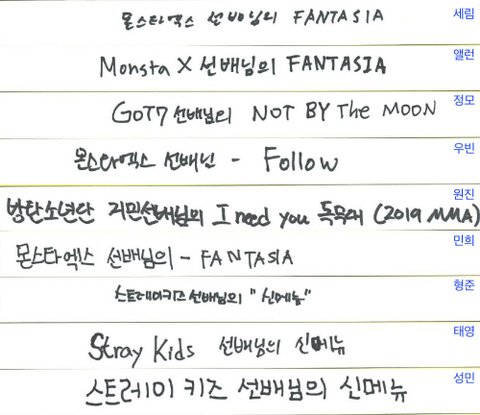 몬스타엑스 선배님의 FANTASIA 세림
Monsta X 선배님의 FANTASIA 앨런
GOT7 선배님의 NOT BY The MOON 정모
몬스타엑스 선배님 - Follow 우빈
방탄소년단 지민선배님의 I need you 독무대 (2019 MMA) 원진
몬스타엑스 선배님의 - FANTASIA 민희
스트레이키즈 선배님의 "신메뉴" 형준
Stray Kids 선배님의 신메뉴 태영
스트레이 키즈 선배님의 신메뉴 성민